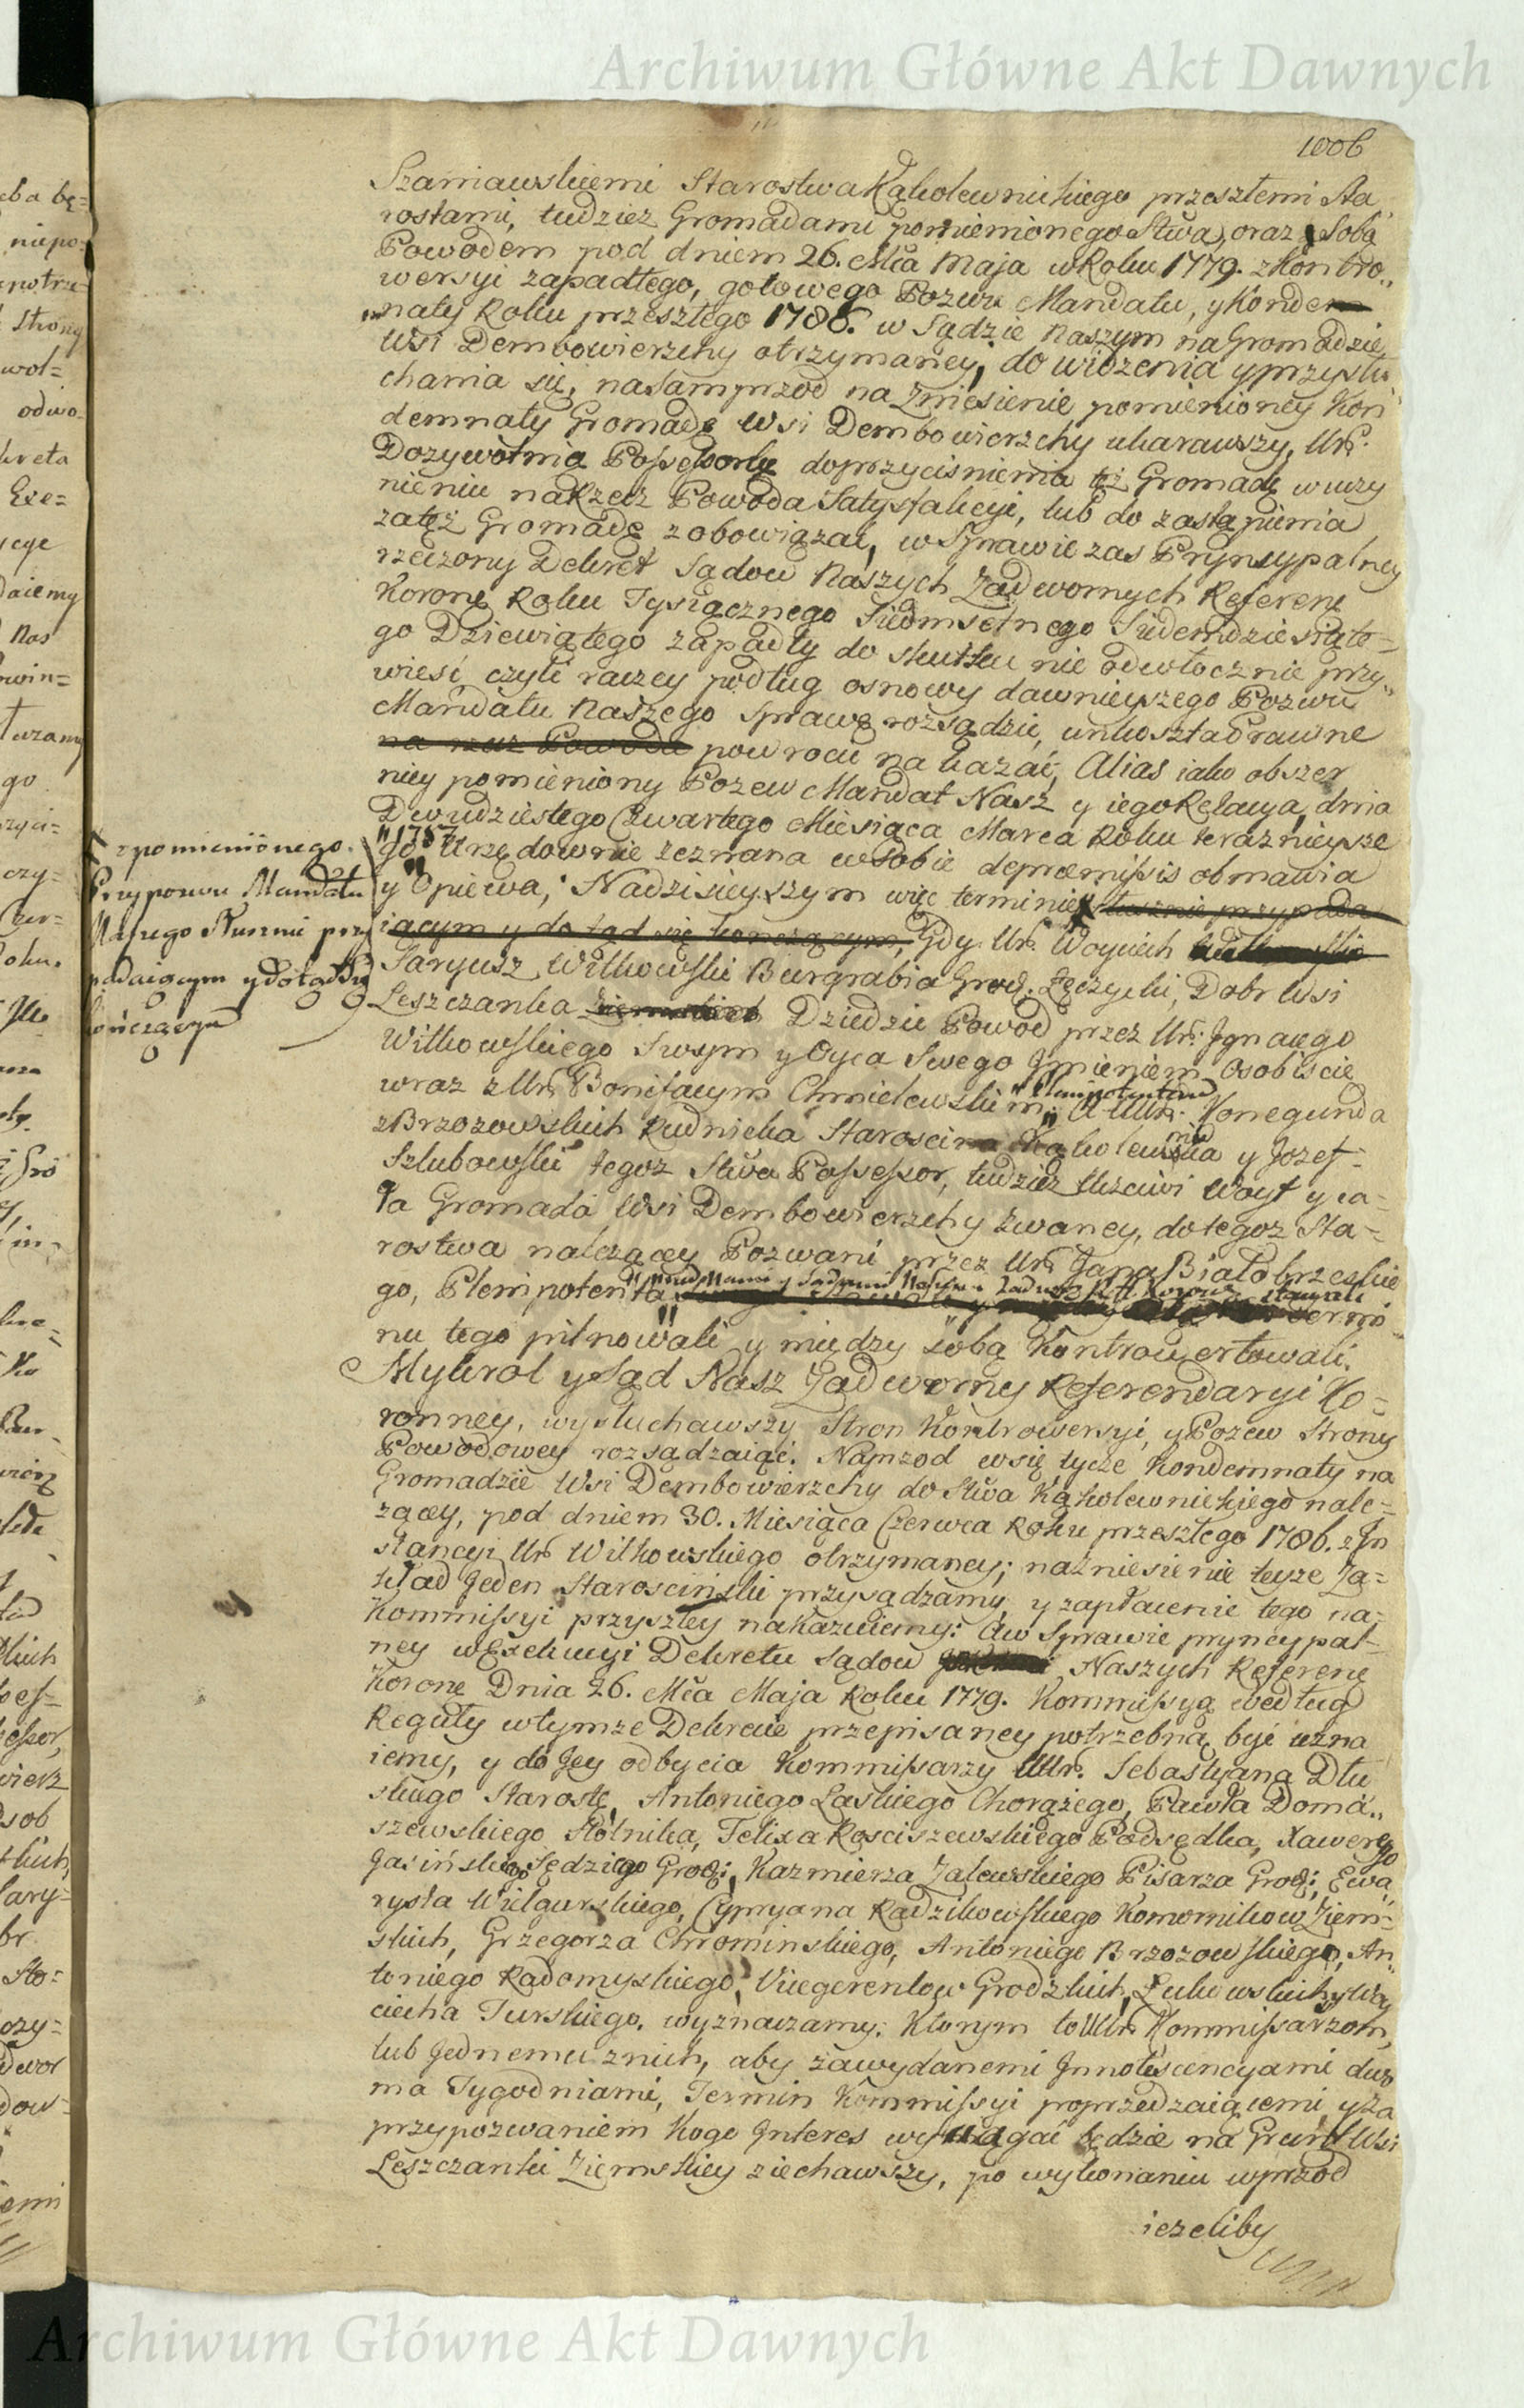 Archiwum Główne Akt Dawnych
1006
Szaniawskiemi Starostwa Kąkolewnickiego przeszłemi Sta
rostami, tudziez Gromadami pomienionego Stwa, oraz Sobą
Powodem pod dniem 26. Mca Maja w Roku 1779. z Kontro„
wersyi zapadłego, gotowego Pozwu Mandatu, y Konde
„mnaty Roku przeszłego 1786. w Sądzie Naszym na Gromadzie
Wsi Dembowierzchy otrzymaney, do widzenia y przysłu
chania się, nasamprzod na Zniesienie pomienioney Kon
demnaty Gromadę Wsi Dembowierzchy ukarawszy, Ur.
Dozywotnią Possessorkę do przycisnienia tęż Gromadę w uczy
nieniu na Rzecz Powoda Satysfakcyi, lub do zastąpienia
zatęż Gromadę zobowiązać, w Sprawie zas Pryncypalney
rzeczony Dekret Sądow Naszych Zadwornych Referenę
Koronę Roku Tysiącznego Siedmsetnego Siedemdziesiąte=
go Dziewiątego zapadły do skutku nie odwłocznie przy„
wiesć, czyli raczey podług osnowy dawnieyszego Pozwu
Mandatu Naszego sprawę rozsądzić, unkoszta Prawne
na rzecz Powoda powrocić nakazać, Alias iako obszer
niey pomieniony Pozew Mandat Nasz y iego Relacya dnia
Dwudziestego Czwartego Miesiąca Marca Roku teraznieysze
"1787
go" Urzędownie zeznana w sobie depraemissis obmawia
y Opiewa, Nadzisieyszym więc terminie słusznie przypada
iącym y dotąd się kończącym, Gdy Ur. Woyciech
z pomienionego
Przypozwu Mandatu
Naszego Słusznie przy
padaiącym y dotąd się
kończącym
Jaryusz Witkowski Burgrabia Grod. Łęczycki, Dobr Wsi
Leszczanka Dziedzic Powod przez Ur. Ignacego
Witkowskiego Swym y Oyca Swego Imieniem Osobiście
wraz z Ur. Bonifacym Chmielewskim Plenipotentem A Ur. Konegunda
z Brzozowskich Rudnicka Starościna Kąkolewnicka y Jozef=
Szlubowski tegoż Stwa Possessor, tudzież Uczciwi Woyt y ca=
ła Gromada Wsi Dembowierzchy zwaney, do tegoż Sta=
rostwa nalezącey Pozwani przez Ur. Jana Białobrzeskie
go, Plenipotenta "przed Nami y Sądami Naszemi Zadwor. Refl. Koronę stawali termi
nu tego pilnowali y między sobą Kontrowertowali.
My Krol y Sąd Nasz Zadworny Referendaryi Ko=
ronney, wysłuchawszy Stron Kontrowersyi, y Pozew Strony
Powodowey rozsądzaiąc. Naprzod w się tycze Kondemnaty na
Gromadzie Wsi Dembowierzchy do Stwa Kąkolewnickiego nale=
zącey, pod dniem 30. Miesiąca Czerwca Roku przeszłego 1786. z In
stancyi Ur. Witkowskiego otrzymaney; na zniesienie teyze Za=
kład Jeden Starosciński przysądzamy, y zapłacenie tego na=
Kommissyi przyszłey nakazuiemy: A w Sprawie pryncypal=
ney w Exekucyi Dekretu Sądow Naszych Referenę
Koronę Dnia 26. Mca Maja Roku 1779. Kommissyą według
Reguły w tymze Dekrecie przepisaney potrzebną być uzna
iemy, y do Jey odbycia Kommissarzy UUr. Sebastyana Dłu
skiego Starostę, Antoniego Laskiego Chorążego, Pawła Doma„
szewskiego Stolnika, Felixa Kosciszewskiego Podsędka, Xawerego
Jasińskiego Sędziego Grodz:, Kazmierza Zalewskiego Pisarza Grodz:, Ewa
rysta Wielgurskiego, Cypryana Radzikowskiego Komornikow Ziem=
skich, Grzegorza Chrominskiego, Antoniego Brzozowskiego, An„
toniego Radomyskiego, Vicegerentow Grodzkich Łukowskich, y Woy
ciecha Turskiego, wyznaczamy. Ktorym to UUr. Kommissarzom,
lub Jednemu znich, aby zawydanemi Innotescencyami dwo
ma Tygodniami, Termin Kommissyi poprzedzaiącemi, y za
przypozwaniem Kogo Interes wyciągać będzie na Grunt Wsi
Leszczanki Ziemskiey ziechawszy, po wykonaniu wprzod
iezeliby
Archiwum Główne Akt Dawnych